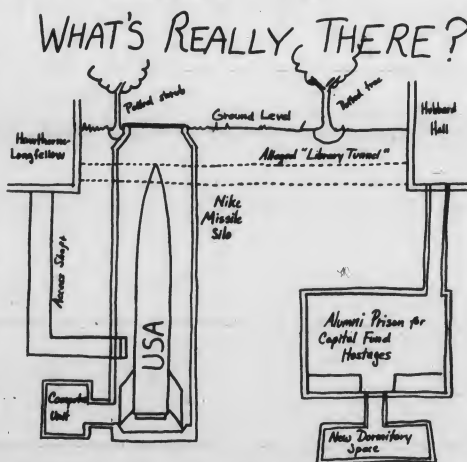 WHAT'S REALLY THERE?
Potted shrub
Potted tree
Ground Level
Hawthorne-
Longfellow
Hubbard
Hall
Alleged "Library Tunnel"
Nike
Missile
Silo
Access Shaft
USA
Computer
Unit
Alumni Prison for
Capital Fund
Hostages
New Dormitory
Space